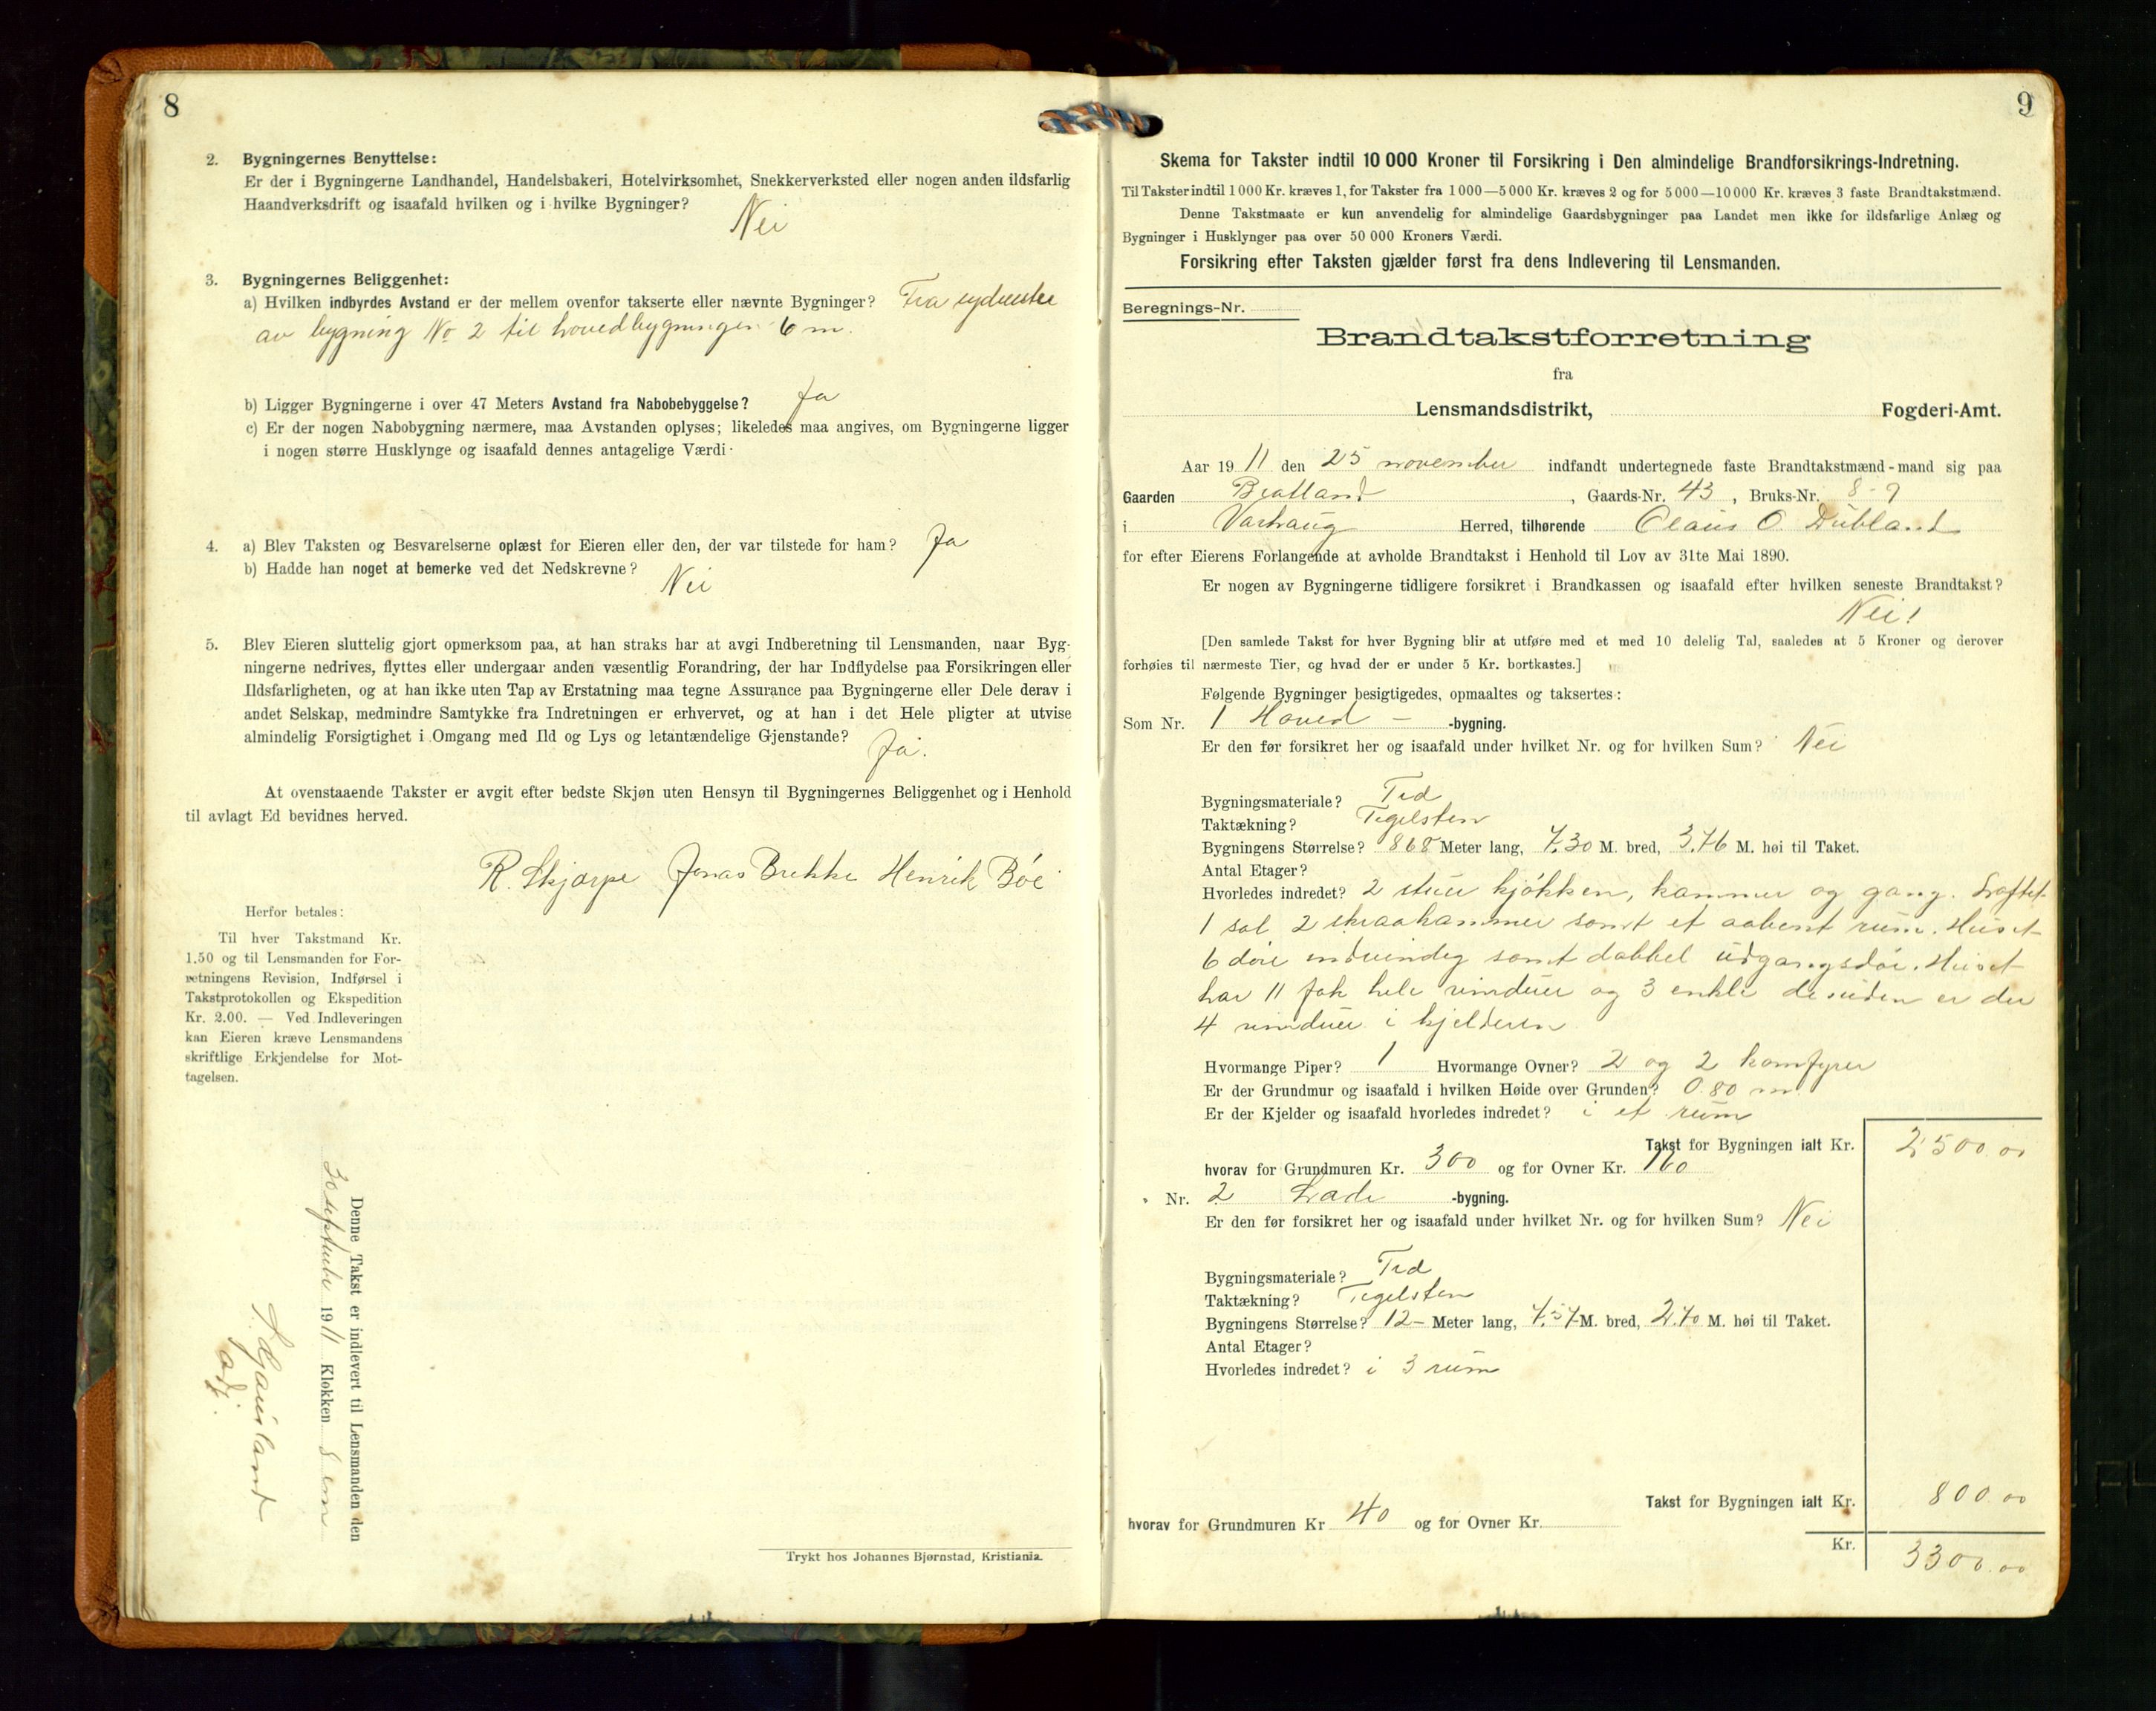 8
2. Bygningernes Benyttelse:
Er der i Bygningerne Landhandel, Handelsbakeri, Hotelvirksomhet, Snekkerverksted eller nogen anden ildsfarlig
Haandverksdrift og isaafald hvilken og i hvilke Bygninger? Nei
3. Bygningernes Beliggenhet:
a) Hvilken indbyrdes Avstand er der mellem ovenfor takserte eller nævnte Bygninger? Fra
av bygning No 2 til hovedbygningen 6 m.
b) Ligger Bygningerne i over 47 Meters Avstand fra Nabobebyggelse? Ja
c) Er der nogen Nabobygning nærmere, maa Avstanden oplyses; likeledes maa angives, om Bygningerne ligger
i nogen større Husklynge og isaafald dennes antagelige Værdi.
4. a) Blev Taksten og Besvarelserne oplæst for Eieren eller den, der var tilstede for ham? Ja
b) Hadde han noget at bemerke ved det Nedskrevne? Nei
5. Blev Eieren sluttelig gjort opmerksom paa, at han straks har at avgi Indberetning til Lensmanden, naar Byg-
ningerne nedrives, flyttes eller undergaar anden væsentlig Forandring, der har Indflydelse paa Forsikringen eller
Ildsfarligheten, og at han ikke uten Tap av Erstatning maa tegne Assurance paa Bygningerne eller Dele derav i
andet Selskap, medmindre Samtykke fra Indretningen er erhvervet, og at han i det Hele pligter at utvise
almindelig Forsigtighet i Omgang med Ild og Lys og letantændelige Gjenstande? Ja.
At ovenstaaende Takster er avgit efter bedste Skjøn uten Hensyn til Bygningernes Beliggenhet og i Henhold
til avlagt Ed bevidnes herved.
R. Skjorpe Jonas Brekke Henrik Böe
Herfor betales:
Til hver Takstmand Kr.
1.50 og til Lensmanden for For-
retningens Revision, Indførsel i
Takstprotokollen og Ekspedition
Kr. 2.00. — Ved Indleveringen
kan Eieren kræve Lensmandens
skriftlige Erkjendelse for Mot-
tagelsen.
Denne Takst er indlevert til Lensmanden den
1911 Klokken 8 em
Gausland
Trykt hos Johannes Bjørnstad, Kristiania.
9
Skema for Takster indtil 10 000 Kroner til Forsikring i Den almindelige Brandforsikrings-Indretning.
Til Takster indtil 1000 Kr. kræves 1, for Takster fra 1000—5000 Kr. kræves 2 og for 5000—10000 Kr. kræves 3 faste Brandtakstmænd.
Denne Takstmaate er kun anvendelig for almindelige Gaardsbygninger paa Landet men ikke for ildsfarlige Anlæg og
Bygninger i Husklynger paa over 50 000 Kroners Værdi.
Forsikring efter Taksten gjælder først fra dens Indlevering til Lensmanden.
Beregnings-Nr.
Brandtakstforretning
fra
Lensmandsdistrikt, Fogderi-Amt.
Aar 1911 den 25 november indfandt undertegnede faste Brandtakstmænd-mand sig paa
Gaarden Bratland, Gaards-Nr. 43, Bruks-Nr. 8-9
i Varhaug Herred, tilhørende Claus O. Dubland
for efter Eierens Forlangende at avholde Brandtakst i Henhold til Lov av 31te Mai 1890.
Er nogen av Bygningerne tidligere forsikret i Brandkassen og isaafald efter hvilken seneste Brandtakst?
Nei!
[Den samlede Takst for hver Bygning blir at utføre med et med 10 delelig Tal, saaledes at 5 Kroner og derover
forhøies til nærmeste Tier, og hvad der er under 5 Kr. bortkastes.]
Følgende Bygninger besigtigedes, opmaaltes og taksertes:
Som Nr. 1 Hoved - -bygning.
Er den før forsikret her og isaafald under hvilket Nr. og for hvilken Sum? Nei
Bygningsmateriale? Træ
Taktækning? Teglsten
Bygningens Størrelse? 8 68 Meter lang, 7.30 M. bred, 3.76 M. høi til Taket.
Antal Etager?
Hvorledes indredet? 2 stuer kjøkken, kammer og gang. Loftet
1 sal 2 skraakammer samt et aabent rum. Huset
6 döre indvendig samt dobbel udgangsdör. Huset
har 11 fak hele vinduer og 3 enkle desuden er der
4 vinduer i kjelderen
Hvormange Piper? 1 Hvormange Ovner? 2 og 2 komfyrer
Er der Grundmur og isaafald i hvilken Høide over Grunden? 0.80 m
Er der Kjelder og isaafald hvorledes indredet? i et rum
Takst for Bygningen ialt Kr. 2500.00
hvorav for Grundmuren Kr. 300 og for Ovner Kr. 160
" Nr. 2 Lade -bygning.
Er den før forsikret her og isaafald under hvilket Nr. og for hvilken Sum? Nei
Bygningsmateriale? Træ
Taktækning? Teglsten
Bygningens Størrelse? 12 - Meter lang, 7.57 M. bred, 2.70 M. høi til Taket.
Antal Etager?
Hvorledes indredet? i 3 rum
Takst for Bygningen ialt Kr. 800.00
hvorav for Grundmuren Kr 40 og for Ovner Kr.
Kr. 3300.00